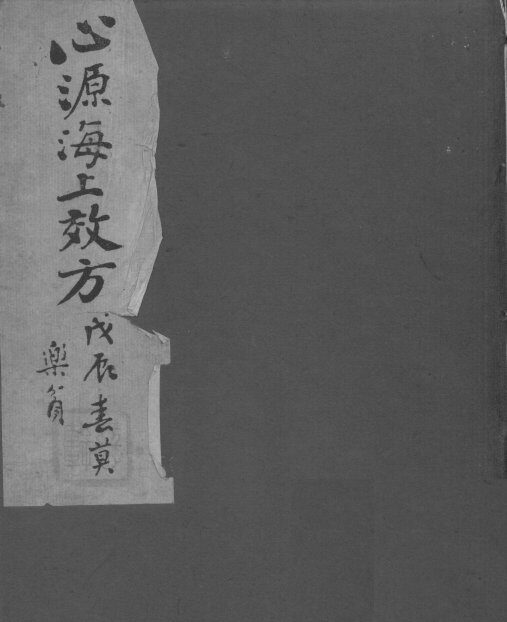 心源海上效方
戊辰春莫
樂貧